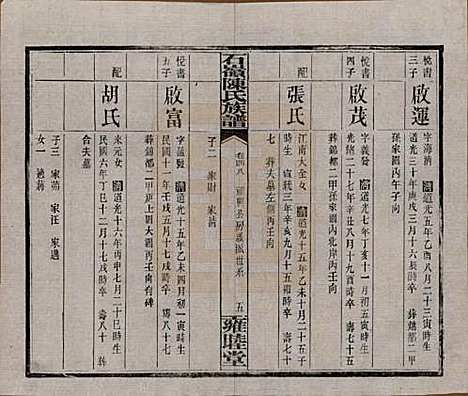 悅書
三子
啟運
字海濤 清道光五年乙酉八月二十三寅時生
道光三十年庚戌三月十六亥時卒 葬鎮都二甲
孫家園內午子向
悅書
四子
啟茂
字義發 清道光七年丁亥十一月二十二戌時生
光緒二十七年辛丑八月十九酉時卒 壽七十五
葬鎮都二甲孫家園北岸丙壬向
配
張氏
江南大全女 清道光十五年乙未十月二十五子
時生 宣統三年辛亥九月十五寅時卒 壽七十
七 葬夫墓左側丙壬向
子二 家財 家
石嶺陳氏族譜
卷四八
公房派世系
五
雍睦堂
悅書
五子
啟富
字益發 清道光十五年乙未四月初一寅時生
民國十一年壬戌十二月十七戌時卒 壽八十七
葬鎮都二甲上園大圓丙壬向有碑
配
胡氏
來元女 清道光十六年丙申七月二十巳時生
民國六年丁巳十二月十七戌時卒 壽八十 葬
合夫墓
子三 家茹 家汪 家邁
女一 適蔣